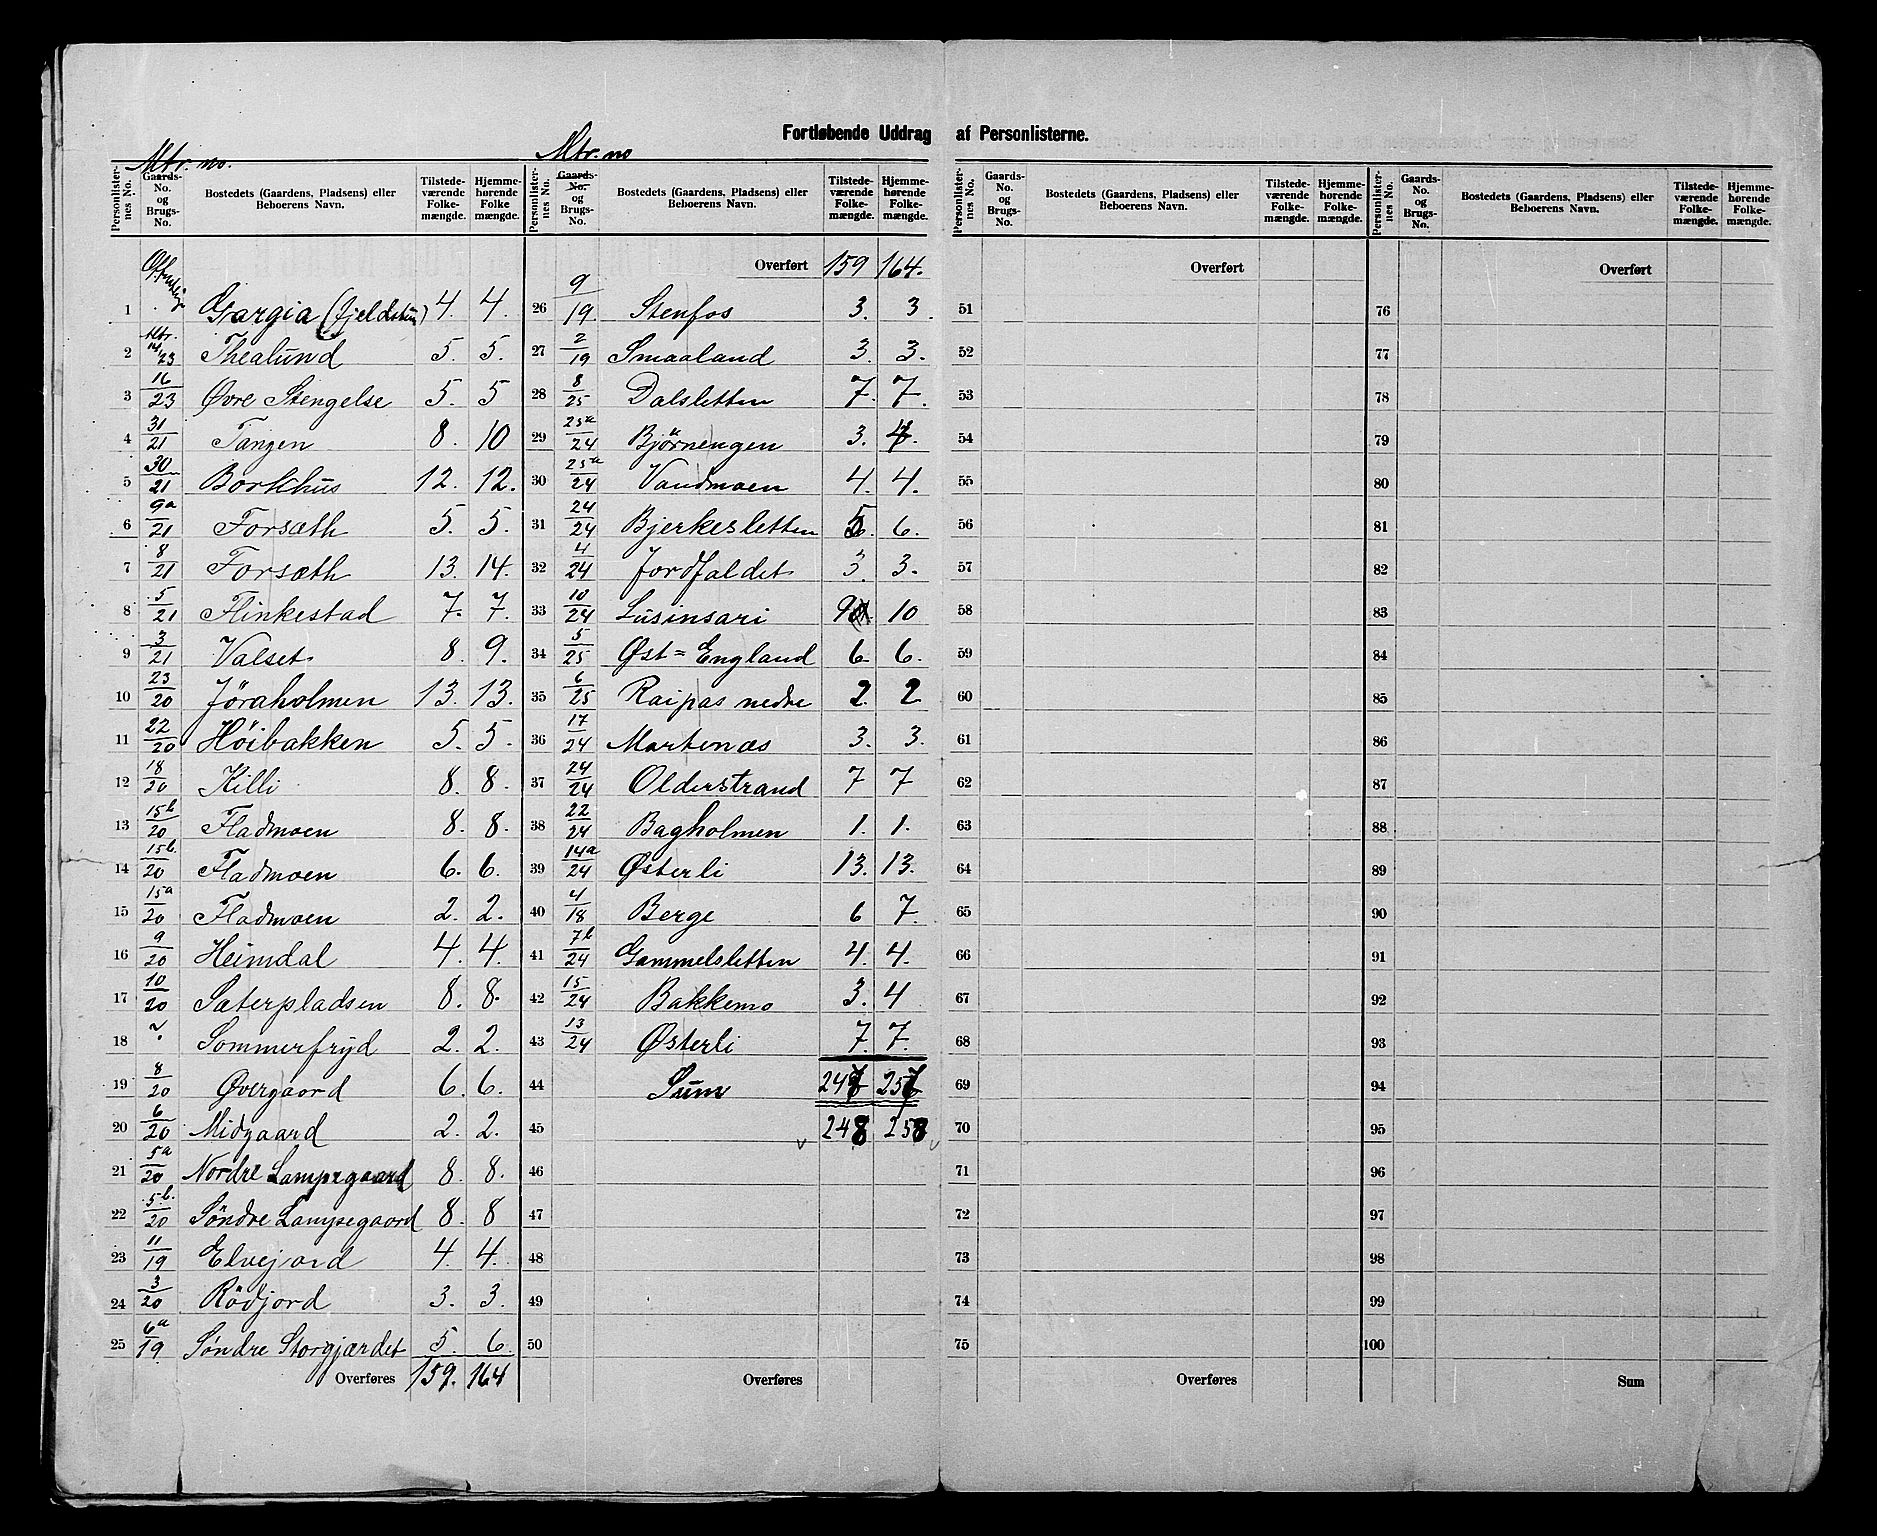 Fortløbende Uddrag af Personlisterne.
Mtr. no. Mtr. no
Personlister- nes No. Gaards- No. og Brugs- No. Bostedets (Gaardens, Pladsens) eller Beboerens Navn. Tilstede- værende Folke- mængde. Hjemme- hørende Folke mængde.
Personlister- nes No. Gaards- No. og Brugs- No. Bostedets (Gaardens, Pladsens) eller Beboerens Navn. Tilstede- værende Folke- mængde. Hjemme- hørende Folke- mængde.
Personlister- nes No. Gaards- No. og Brugs- No. Bostedets (Gaardens, Pladsens) eller Beboerens Navn. Tilstede- værende Folke- mængde. Hjemme- hørende Folke- mængde.
Personlister- nes No. Gaards- No. og Brugs- No. Bostedets (Gaardens, Pladsens) eller Beboerens Navn. Tilstede- værende Folke- mængde. Hjemme- hørende Folke- mængde.
1 Gargia (fjeldstue) 4. 4.
2 Mtr. 14/23 Thealund 5. 5.
3 16/23 Øvre Stengelse 5. 5
4 31/21 Tangen 8. 10
5 30/21 Borkhus 12. 12.
6 9a/21 Forsæth 5. 5.
7 8/21 Forsæth 13. 14.
8 5/21 Flinkestad 7. 7.
9 3/21 Valset 8. 9.
10 23/20 Jöraholmen 13. 13.
11 22/20 Höibakken 5. 5.
12 18/20 Killi 8. 8.
13 15b/20 Fladmoen 8. 8.
14 15b./20 Fladmoen 6. 6.
15 15a/20 Fladmoen 2. 2.
16 9/20 Heimdal 4. 4.
17 10/20 Sæterpladsen 8. 8.
18 ? Sommerfryd 2. 2.
19 8/20 Øvergaard 6. 6.
20 6/20 Midgaard 2. 2.
21 5a/20 Nordre Lampegaard 8. 8.
22 5b./20 Søndre Lampegaard 8. 8
23 11/19 Elvejord 4. 4.
24 3/20 Rödjord 3. 3.
25 6a/19 Søndre Storgjærdet 5. 6.
Overføres 159. 164
Overført 159 164.
26 9/19. Stenfos 3. 3.
27 2/19 Smaaland 3. 3.
28 8/25 Dalsletten 7. 7.
29 23a/24 Bjørnengen 3. 4.
30 25a/24 Vandmoen 4. 4.
31 24/24 Bjerkesletten 5. 6.
32 4/24 Jordfaldet 3. 3.
33 10/24 Lusinsari 9 10
34 5/25 Øst=England 6. 6.
35 6/25 Raipas nedre 2. 2
36 17/24 Martenæs 3. 3.
37 24/24 Olderstrand 7 7
38 22/24 Bagholmen 1. 1.
39 14a/24 Østerli 13. 13.
40 4/18 Berge 6 7.
41 7b/24 Gammelsletten 4. 4.
42 15/24 Bakkemo 3. 4
43 13/24 Østerli 7. 7.
44 Sum 247 257
45 248 258
46
47
48
49
50
Overføres
Overført
51
52
53
54
55
56
57
58
59
60
61
62
63
64
65
66
67
68
69
70
71
72
73
74
75
Overføres
Overført
76
77
78
79
80
81
82
83
84
85
86
87
88
89
90
91
92
93
94
95
96
97
98
99
100
Sum